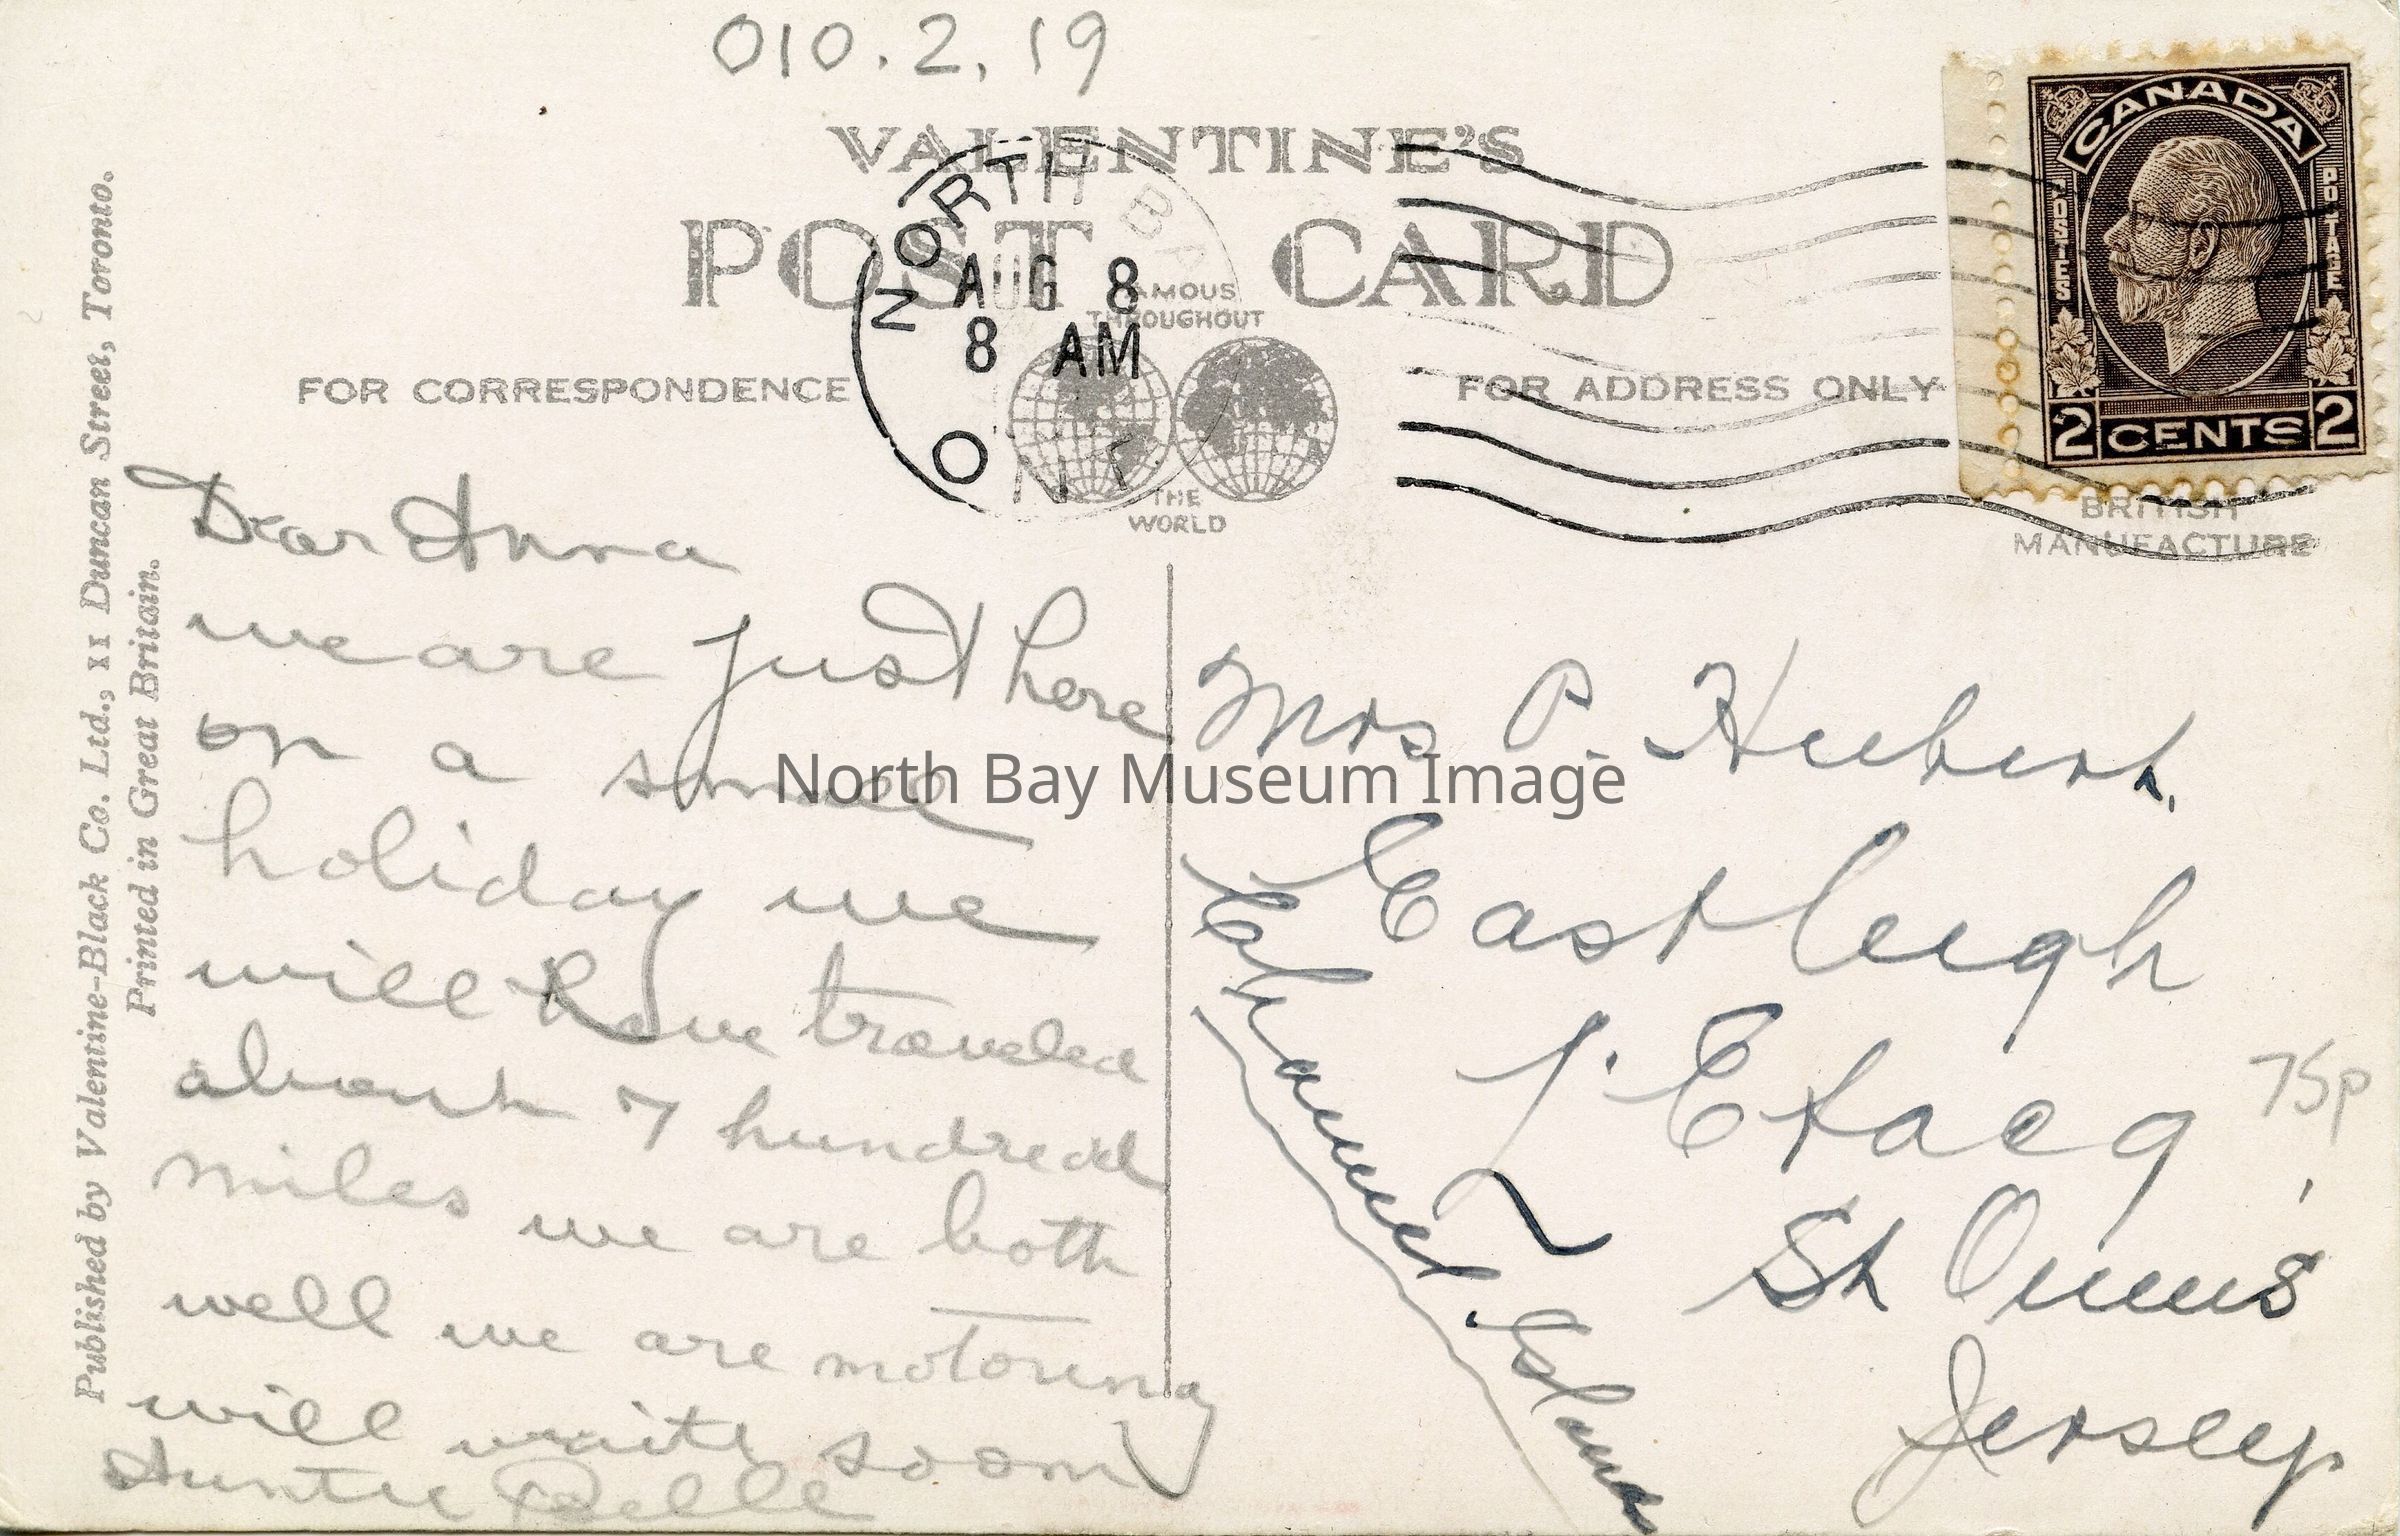 010.2.19
VALENTINE'S
POST CARD
FAMOUS
THROUGHOUT
THE
WORLD
NORTH BAY
AUG 8
8 AM
ONT
CANADA
POSTES
POSTAGE
2 CENTS 2
BRITISH
MANUFACTURE
FOR CORRESPONDENCE
FOR ADDRESS ONLY
Published by Valentine-Black Co. Ltd., 11 Duncan Street, Toronto.
Printed in Great Britain.
Dear Anna
we are just here
on a small
holiday we
will have traveled
about 7 hundred
miles we are both
well we are motoring
will write soon
Auntie Belle
Mrs P. Hubert.
Eastleigh
L'Etacq
St Ouens
Jersey
Channel Island
75p
North Bay Museum Image